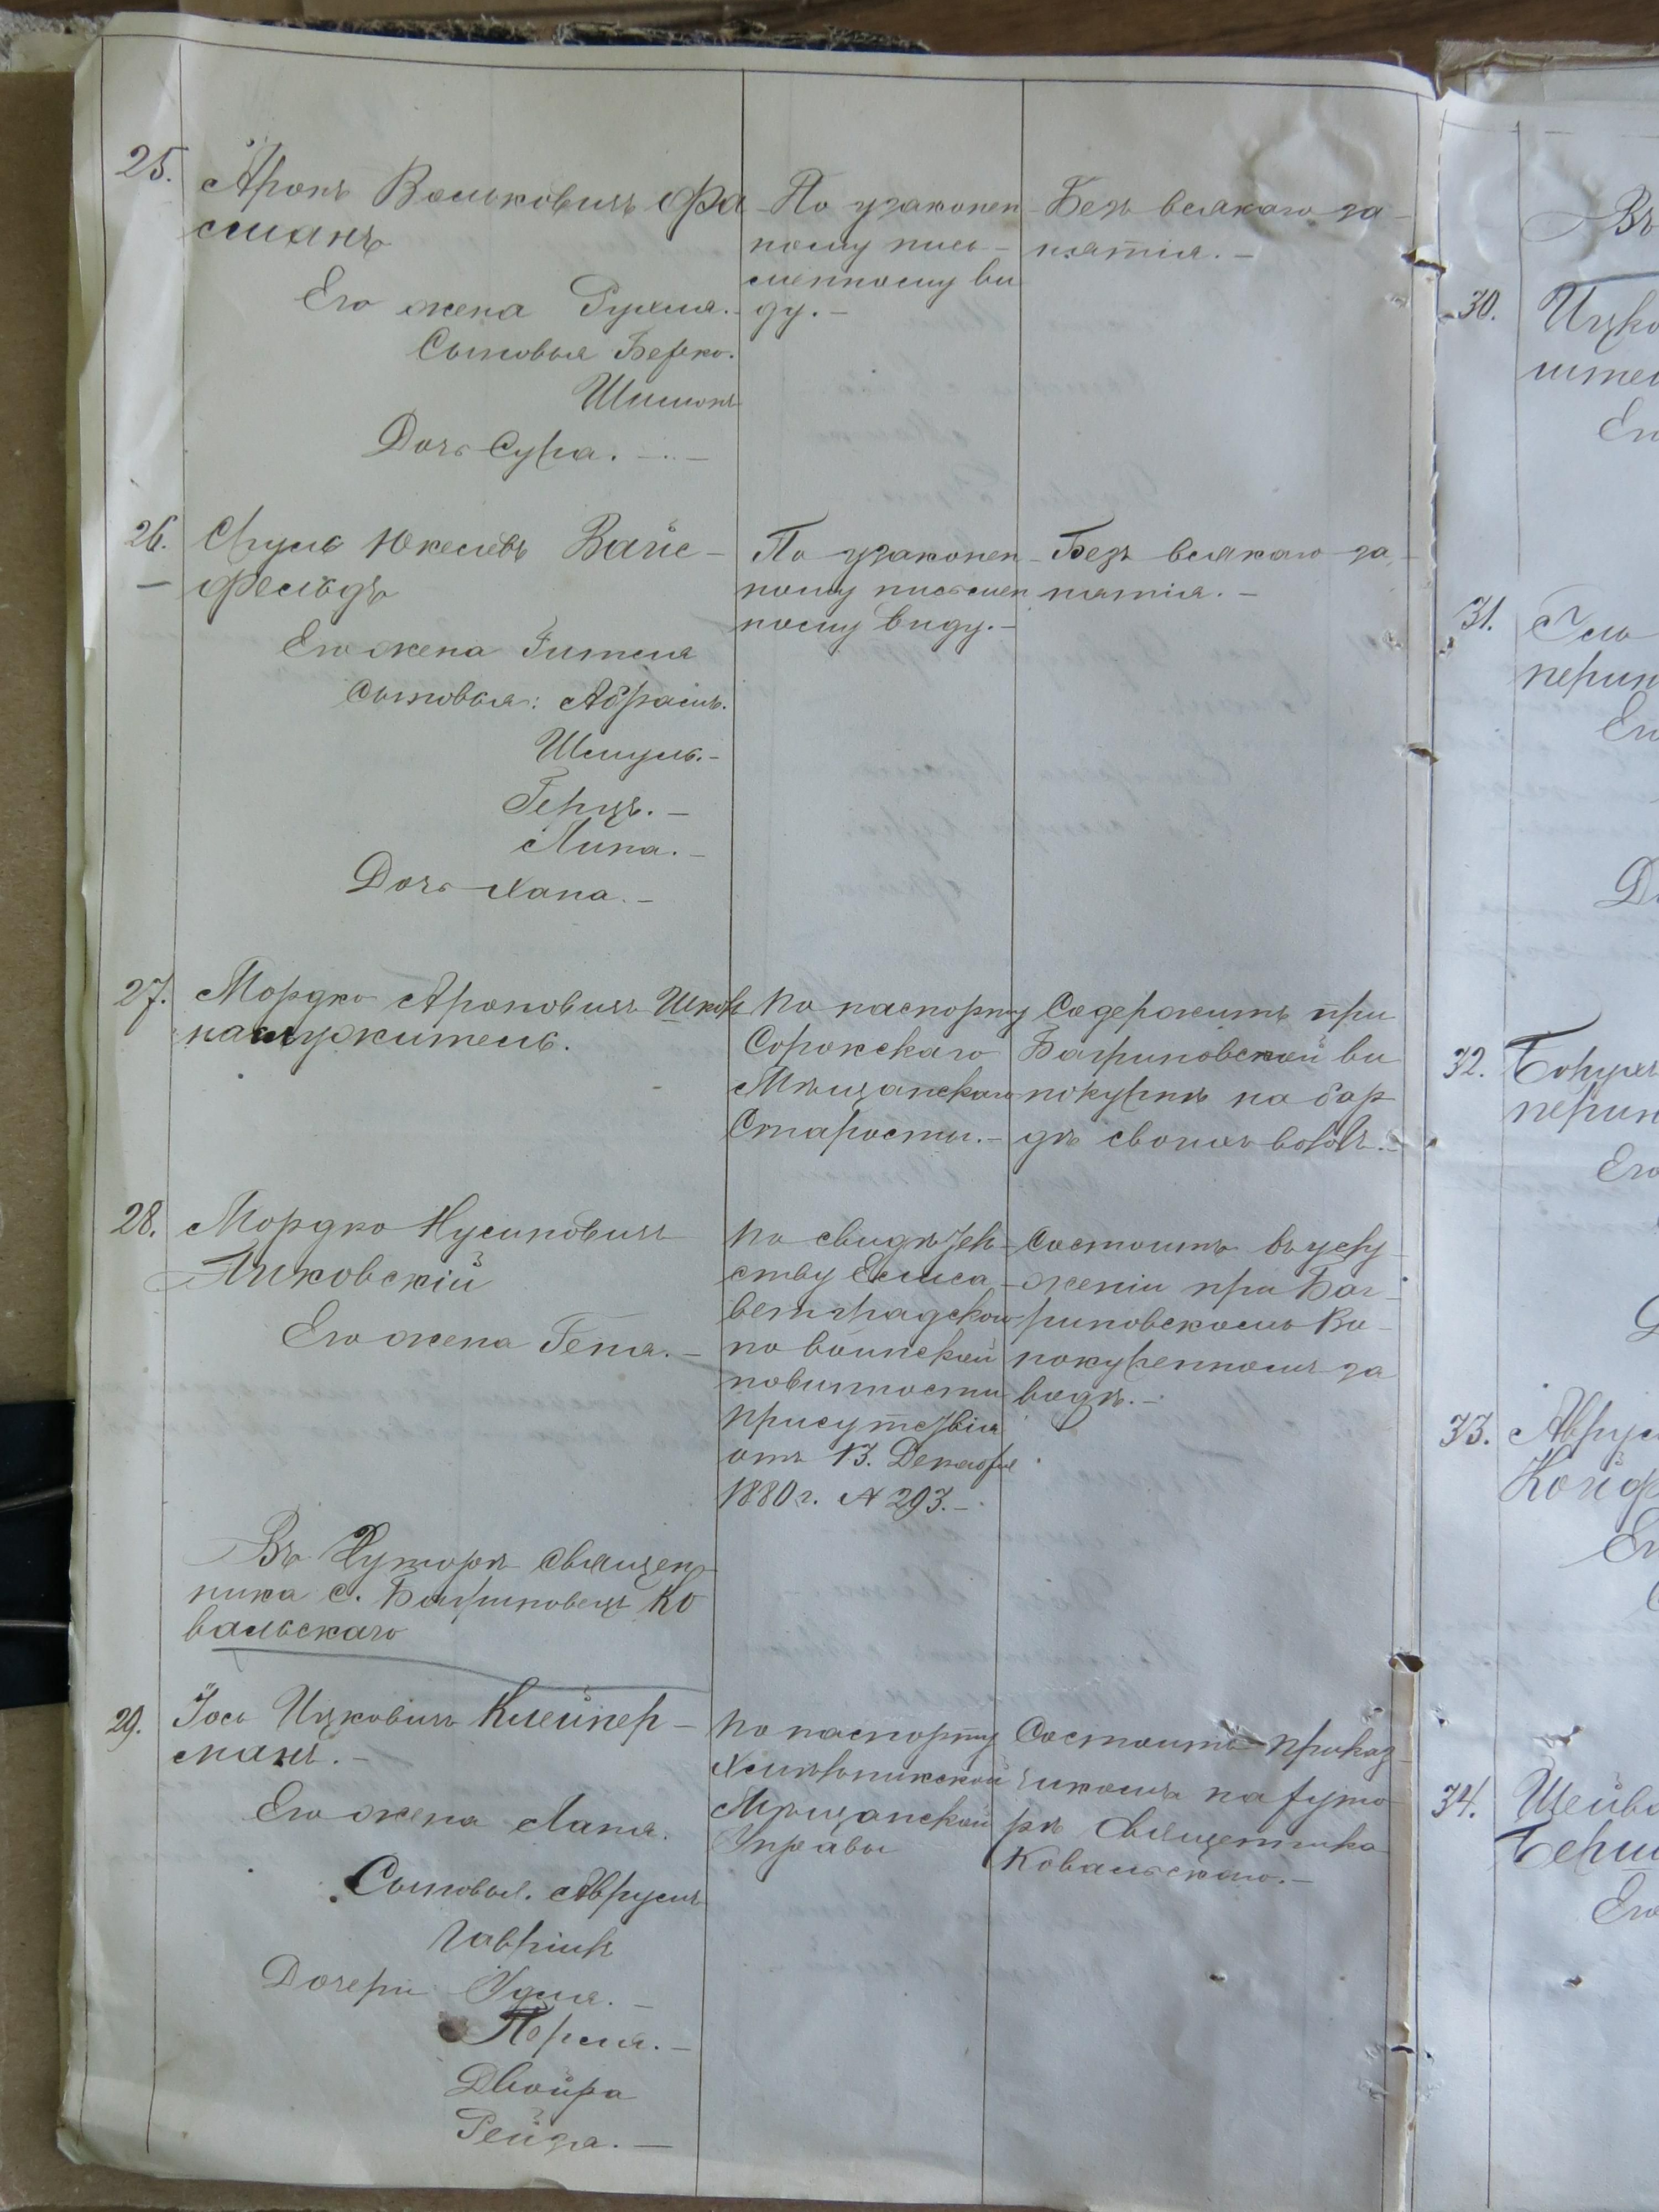 25.
Аронъ Вольковичъ Фа
сманъ
Его жена Рухля.
Сыновья Берко.
Шимонъ
Дочь Сура.
По узаконен
ному пись-
менному ви
ду.-
Безъ всякаго за-
нятія.-
26.
Сруль Юкелевъ Вайс-
фельдъ
Его жена Гителя
Сыновья: Абрамъ.
Шмуль.-
Герцъ.-
Липа.-
Дочь Хана.-
По узаконен
ному письмен
ному виду.-
Безъ всякаго за-
нятія.-
27.
Мордко Ароновичъ
По паспорту
Сорокскаго
Мѣщанскаго
Старосты.-
Содержитъ при
Багриновской ви
нокурнѣ на бар
дѣ своихъ воловъ.-
28.
Мордко Нусиновичъ
Его жена Геня.-
По свидѣтель-
ству Елиса-
ветградской
по воинской
повинности
присутствія
отъ 13. Декабря
1880 г. № 293.-
Состоитъ въ услу
женіи при Баг-
риновскомъ Ви-
нокуренномъ за
водѣ.-
Въ Хуторѣ священ
ника с. Багриновецъ Ко
вальскаго
29.
Іось Ицковичъ Клейнер-
манъ.-
Его жена Ланя.
Сыновья. Аврумъ
Гавріил
Дочери Удля.-
Перля.-
Двойра
Рейза.-
По паспорту
Хмѣльникской
Мѣщанской
Управы
Состоитъ приказ-
чикомъ на хуто
рѣ Священника
Ковальскаго.-
Въ
30.
Ицко
штей
Его
31.
перин
Его
32.
Борухъ
перин
Его
33.
Аврум
Его
34.
Его